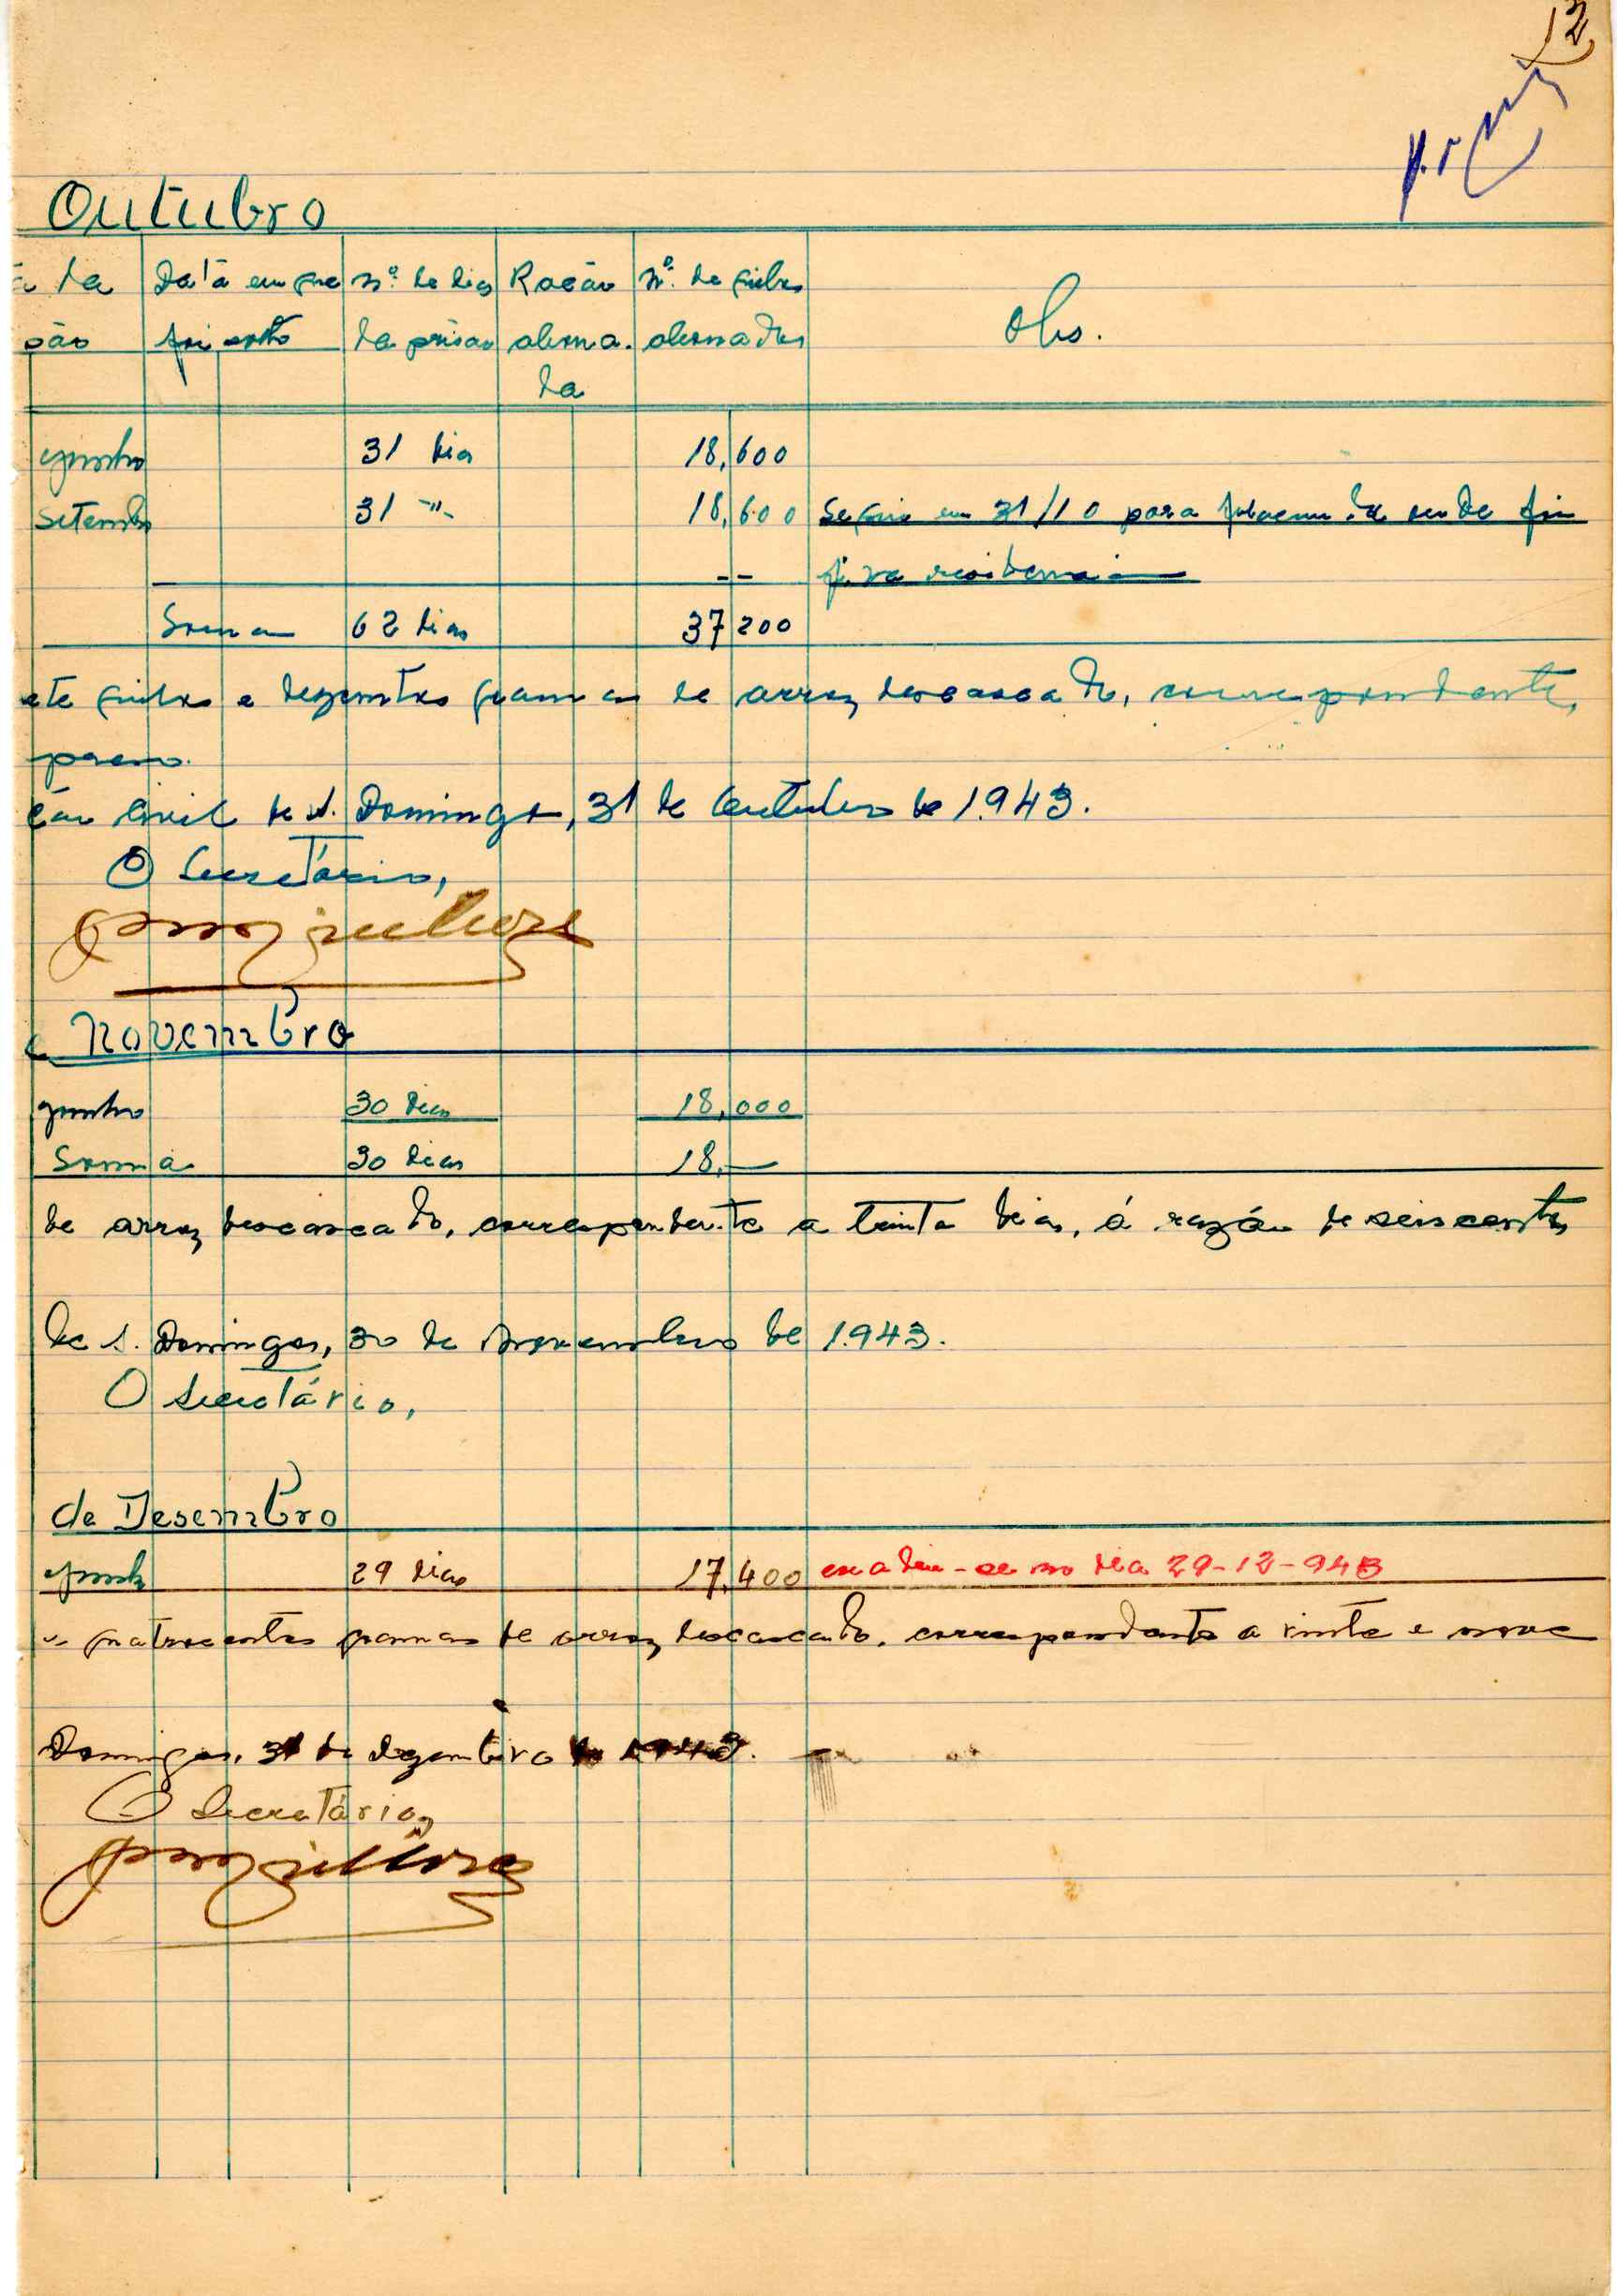 12
Outubro
da Data em que Nº de dias Ração Nº de quilos
ção foi solto da prisão abona- abonados Obs.
da
Junho 31 dias 18,600
Setembro 31 " 18,600 Seguiu em 31/10 para onde foi
--
Soma 62 dias 37 200
ete quilos e duzentos gramas de arroz descascado, correspondente,
ção Civil de S. Domingos, 31 de Outubro de 1.943.
O Secretário,
Novembro
Junho 30 dias 18,000
Soma 30 dias 18,—
de arroz descascado, correspondente a trinta dias, á razão de seiscentos
de S. Domingos, 30 de Novembro de 1.943.
O Secretário,
de Desembro
Junho 29 dias 17,400 evadiu-se no dia 29-12-943
quatrocentos gramas de arroz descascado, correspondente a vinte e nove
Domingos, 31 de dezembro de 1943.
O Secretário,